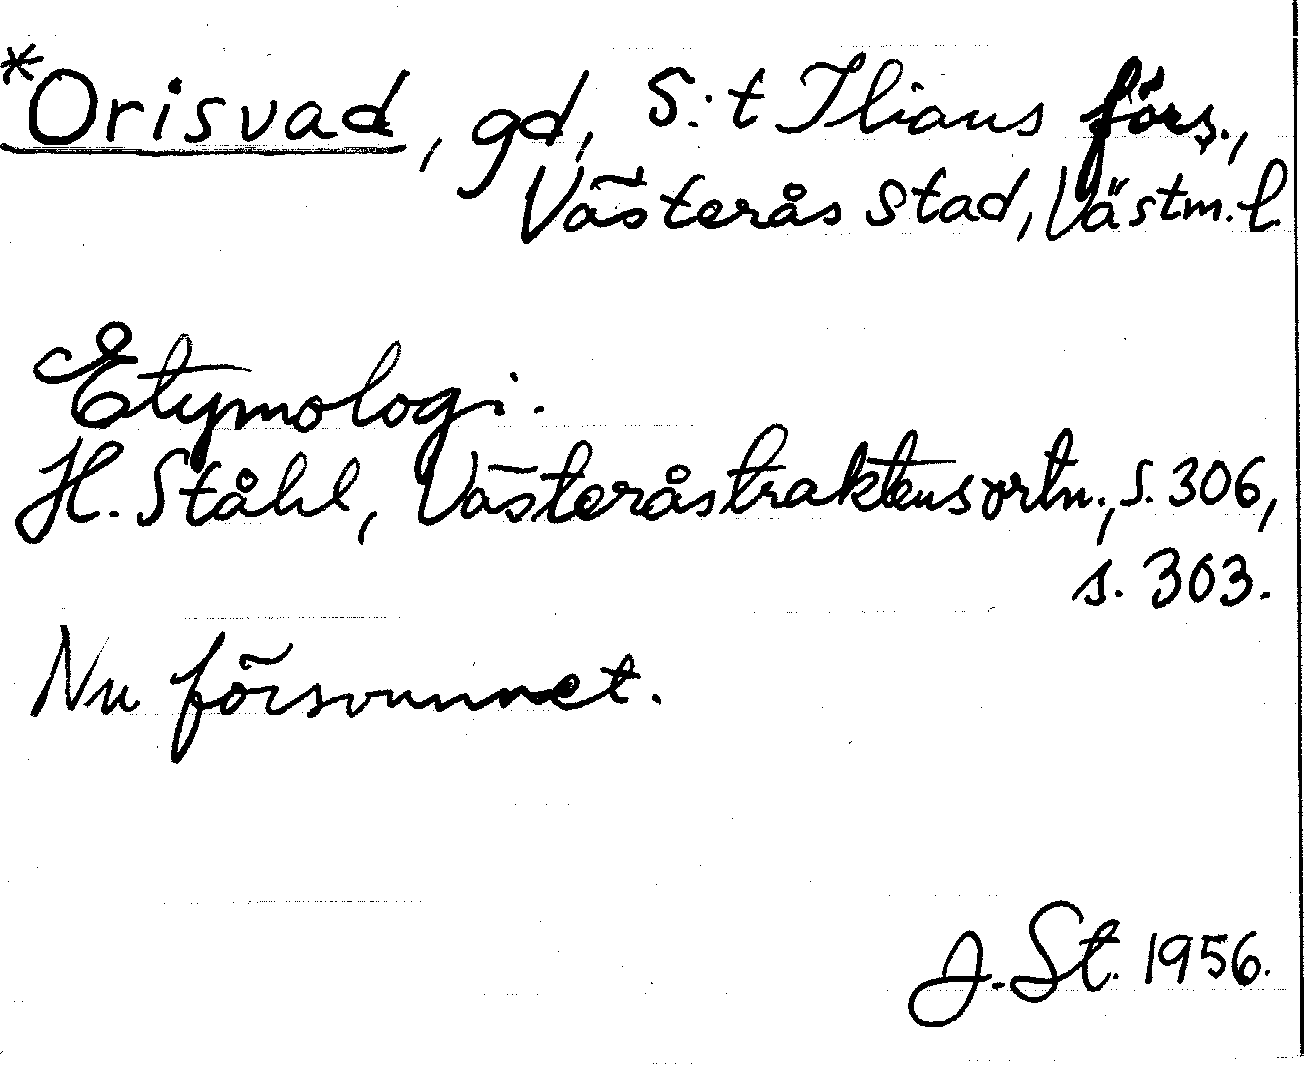 *Orisvad, gd, S:t Ilians förs.,
Västerås stad, Västm. l.
Etymologi.
H. Ståhl, Västeråstraktens ortn., s. 306,
s. 303.
Nu försvunnet.
J. St. 1956.